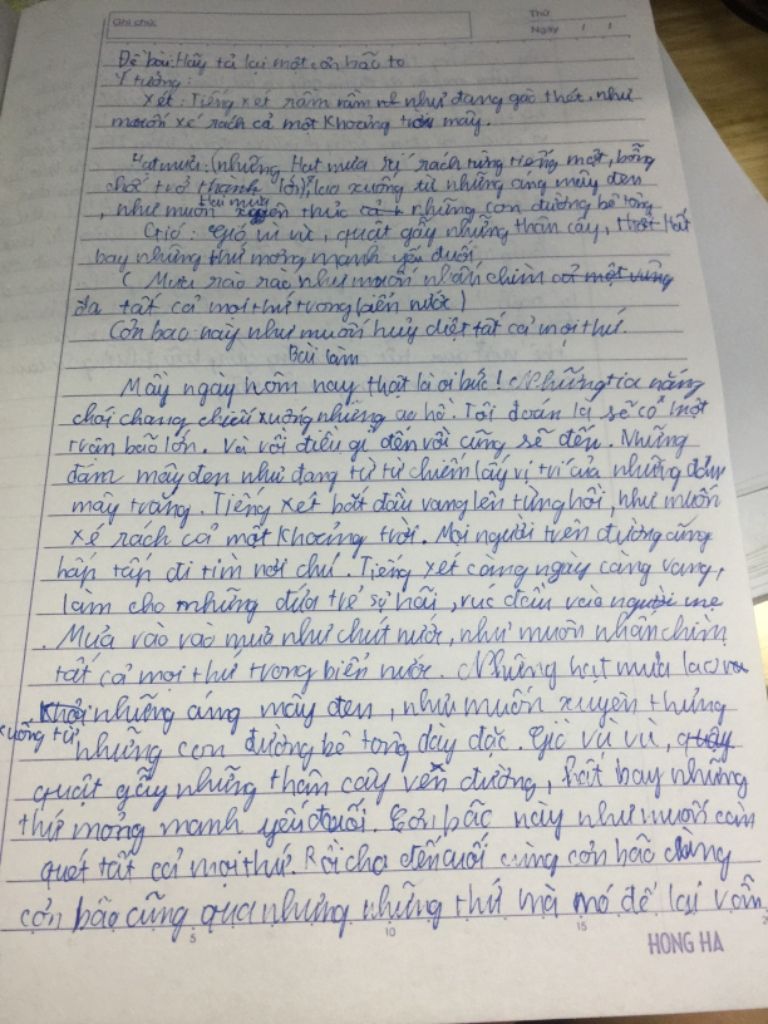 Ghi chú:
Thứ
Ngày / /
Đề bài: Hãy tả lại một cơn bão to
Ý tưởng:
Xét: Tiếng xét rầm rầm như đang gào thét, như
muốn xé rách cả một khoảng trời mây.
Hạt mưa: (những Hạt mưa rí rách từng tiếng một, bỗng
chốc trở thành lớn), lao xuống từ những áng mây đen
, như muốn xuyên thủc những con đường bê tông
Gió: Gió vù vù, quật gãy những thân cây, hất
bay những thứ mỏng manh yếu đuối
( Mưa rào rào như muốn nhấn chìm
tất cả mọi thứ trong biển nước)
Cơn bão này như muốn huỷ diệt tất cả mọi thứ.
Bài làm
Mấy ngày hôm nay thật là oi bức! Những tia nắng
chói chang chiếu xuống những ao hồ. Tôi đoán là sẽ có một
trận bão lớn. Và rồi điều gì đến rồi cũng sẽ đến. Những
đám mây đen như đang từ từ chiếm lấy vị trí của những đám
mây trắng. Tiếng xét bắt đầu vang lên từng hồi, như muốn
xé rách cả một khoảng trời. Mọi người trên đường cũng
hấp tấp đi tìm nơi chú. Tiếng xét càng ngày càng vang,
làm cho những đứa trẻ sợ hãi, rục đầu vào người mẹ
. Mưa rào rào mưa như chút nước, như muốn nhấn chìm
tất cả mọi thứ trong biển nước. Những hạt mưa lao
xuống từ những áng mây đen, như muốn xuyên thủng
những con đường bê tông dày đặc. Gió vù vù,
quật gãy những thân cây vên đường, hất bay những
thứ mỏng manh yếu đuối. Cơn bão này như muốn càn
quét tất cả mọi thứ. Rồi cho đến cuối cùng cơn bão
cơn bão cũng qua nhưng những thứ mà nó để lại vẫn
5 10 15
HONG HA